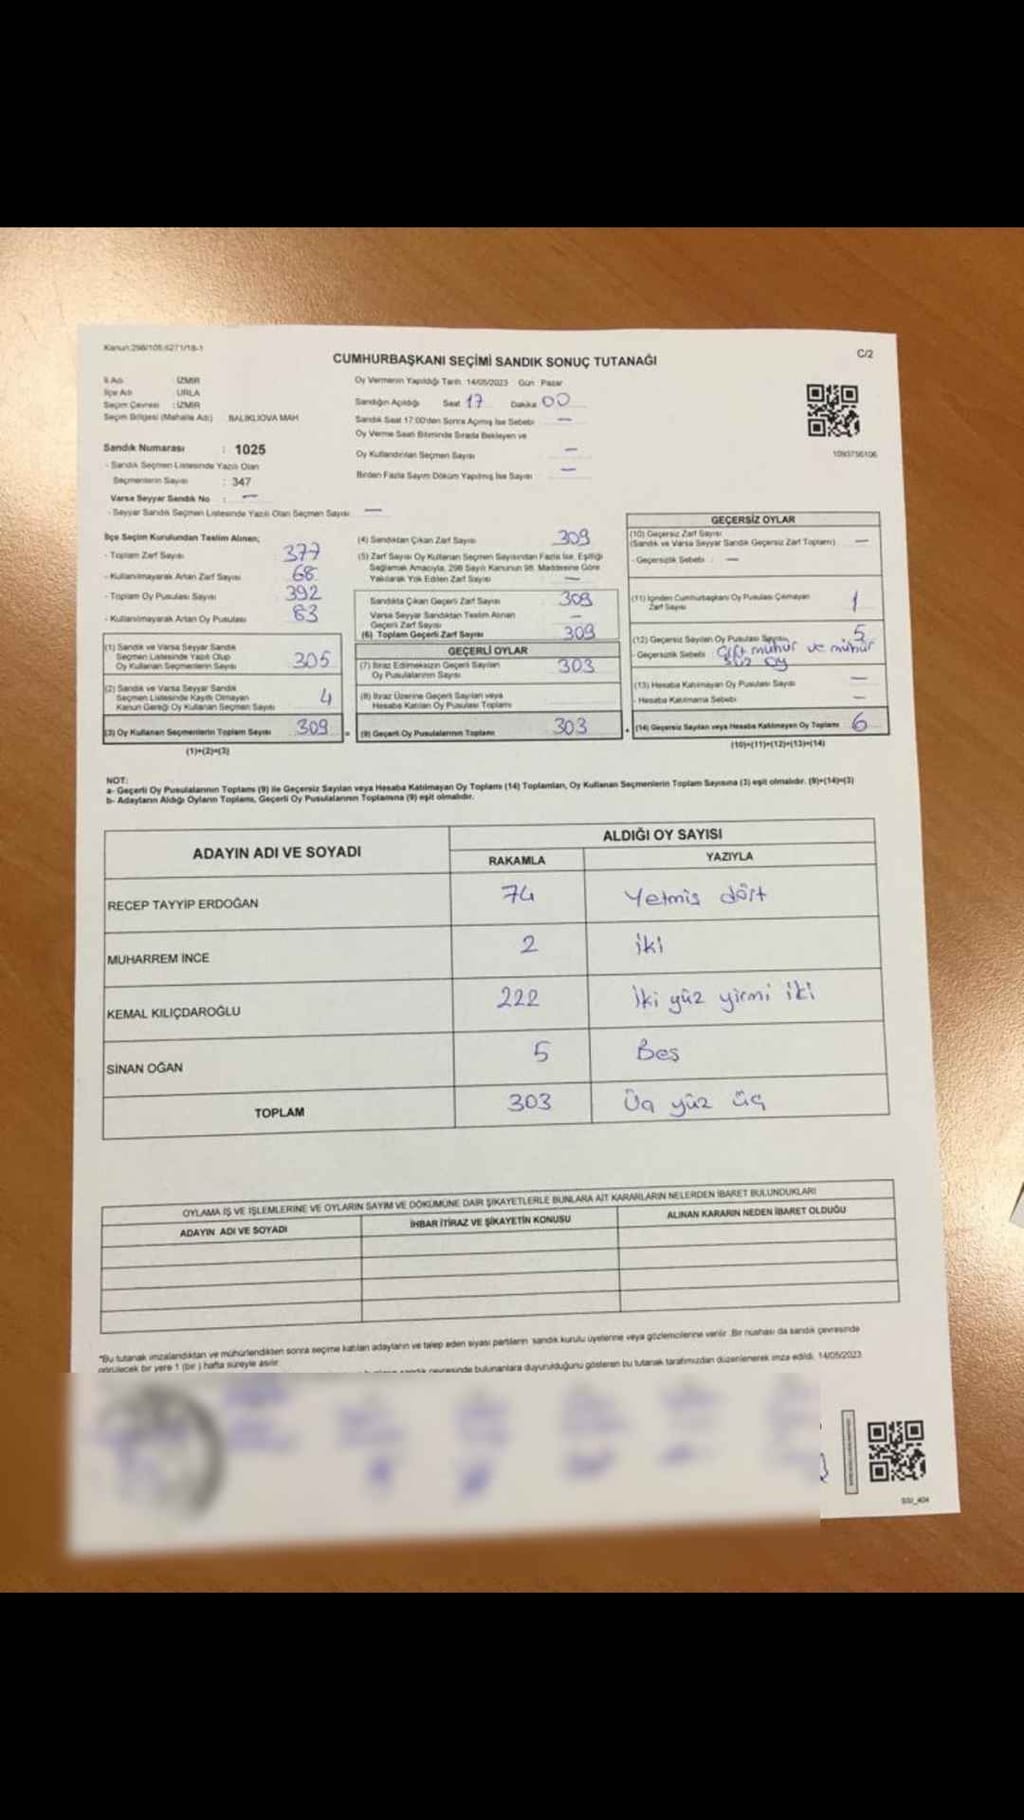 Kanun:298/105,6271/18-1
C/2
CUMHURBAŞKANI SEÇİMİ SANDIK SONUÇ TUTANAĞI
İl Adı : İZMİR
İlçe Adı : URLA
Seçim Çevresi : İZMİR
Seçim Bölgesi (Mahalle Adı) BALIKLIOVA MAH
Sandık Numarası : 1025
- Sandık Seçmen Listesinde Yazılı Olan
Seçmenlerin Sayısı : 347
Varsa Seyyar Sandık No : —
- Seyyar Sandık Seçmen Listesinde Yazılı Olan Seçmen Sayısı —
Oy Vermenin Yapıldığı Tarih 14/05/2023 Gün Pazar
Sandığın Açıldığı Saat 17 Dakika 00
Sandık Saat 17:00'den Sonra Açılmış İse Sebebi —
Oy Verme Saati Bitiminde Sırada Bekleyen ve
Oy Kullandırılan Seçmen Sayısı —
Birden Fazla Sayım Döküm Yapılmış İse Sayısı —
1093756106
İlçe Seçim Kurulundan Teslim Alınan;
- Toplam Zarf Sayısı 377
- Kullanılmayarak Artan Zarf Sayısı 68
- Toplam Oy Pusulası Sayısı 392
- Kullanılmayarak Artan Oy Pusulası 83
(1) Sandık ve Varsa Seyyar Sandık
Seçmen Listesinde Yazılı Olup
Oy Kullanan Seçmenlerin Sayısı 305
(2) Sandık ve Varsa Seyyar Sandık
Seçmen Listesinde Kayıtlı Olmayan
Kanun Gereği Oy Kullanan Seçmen Sayısı 4
(3) Oy Kullanan Seçmenlerin Toplam Sayısı 309
(1)+(2)=(3)
(4) Sandıktan Çıkan Zarf Sayısı 309
(5) Zarf Sayısı Oy Kullanan Seçmen Sayısından Fazla İse, Eşitliği
Sağlamak Amacıyla, 298 Sayılı Kanunun 98. Maddesine Göre
Yakılarak Yok Edilen Zarf Sayısı —
Sandıkta Çıkan Geçerli Zarf Sayısı 309
Varsa Seyyar Sandıktan Teslim Alınan
Geçerli Zarf Sayısı —
(6) Toplam Geçerli Zarf Sayısı 309
GEÇERLİ OYLAR
(7) İtiraz Edilmeksizin Geçerli Sayılan
Oy Pusulalarının Sayısı 303
(8) İtiraz Üzerine Geçerli Sayılan veya
Hesaba Katılan Oy Pusulası Toplamı
(9) Geçerli Oy Pusulalarının Toplamı 303
GEÇERSİZ OYLAR
(10) Geçersiz Zarf Sayısı
(Sandık ve Varsa Seyyar Sandık Geçersiz Zarf Toplamı) —
- Geçersizlik Sebebi : —
(11) İçinden Cumhurbaşkanı Oy Pusulası Çıkmayan
Zarf Sayısı 1
(12) Geçersiz Sayılan Oy Pusulası Sayısı 5
- Geçersizlik Sebebi : Çift mühür ve mühür
süz oy
(13) Hesaba Katılmayan Oy Pusulası Sayısı —
- Hesaba Katılmama Sebebi —
(14) Geçersiz Sayılan veya Hesaba Katılmayan Oy Toplamı 6
(10)+(11)+(12)+(13)=(14)
NOT:
a- Geçerli Oy Pusulalarının Toplamı (9) ile Geçersiz Sayılan veya Hesaba Katılmayan Oy Toplamı (14) Toplamları, Oy Kullanan Seçmenlerin Toplam Sayısına (3) eşit olmalıdır. (9)+(14)=(3)
b- Adayların Aldığı Oyların Toplamı, Geçerli Oy Pusulalarının Toplamına (9) eşit olmalıdır.
ADAYIN ADI VE SOYADI
ALDIĞI OY SAYISI
RAKAMLA YAZIYLA
RECEP TAYYİP ERDOĞAN 74 Yetmiş dört
MUHARREM İNCE 2 iki
KEMAL KILIÇDAROĞLU 222 İki yüz yirmi iki
SİNAN OĞAN 5 Beş
TOPLAM 303 Üç yüz üç
OYLAMA İŞ VE İŞLEMLERİNE VE OYLARIN SAYIM VE DÖKÜMÜNE DAİR ŞİKAYETLERLE BUNLARA AİT KARARLARIN NELERDEN İBARET BULUNDUKLARI
ADAYIN ADI VE SOYADI İHBAR İTİRAZ VE ŞİKAYETİN KONUSU ALINAN KARARIN NEDEN İBARET OLDUĞU
*Bu tutanak imzalandıktan ve mühürlendikten sonra seçime katılan adayların ve talep eden siyasi partilerin sandık kurulu üyelerine veya gözlemcilerine verilir. Bir nüshası da sandık çevresinde
görülecek bir yere 1 (bir) hafta süreyle asılır.
sandık çevresinde bulunanlara duyurulduğunu gösteren bu tutanak tarafımızdan düzenlenerek imza edildi. 14/05/2023